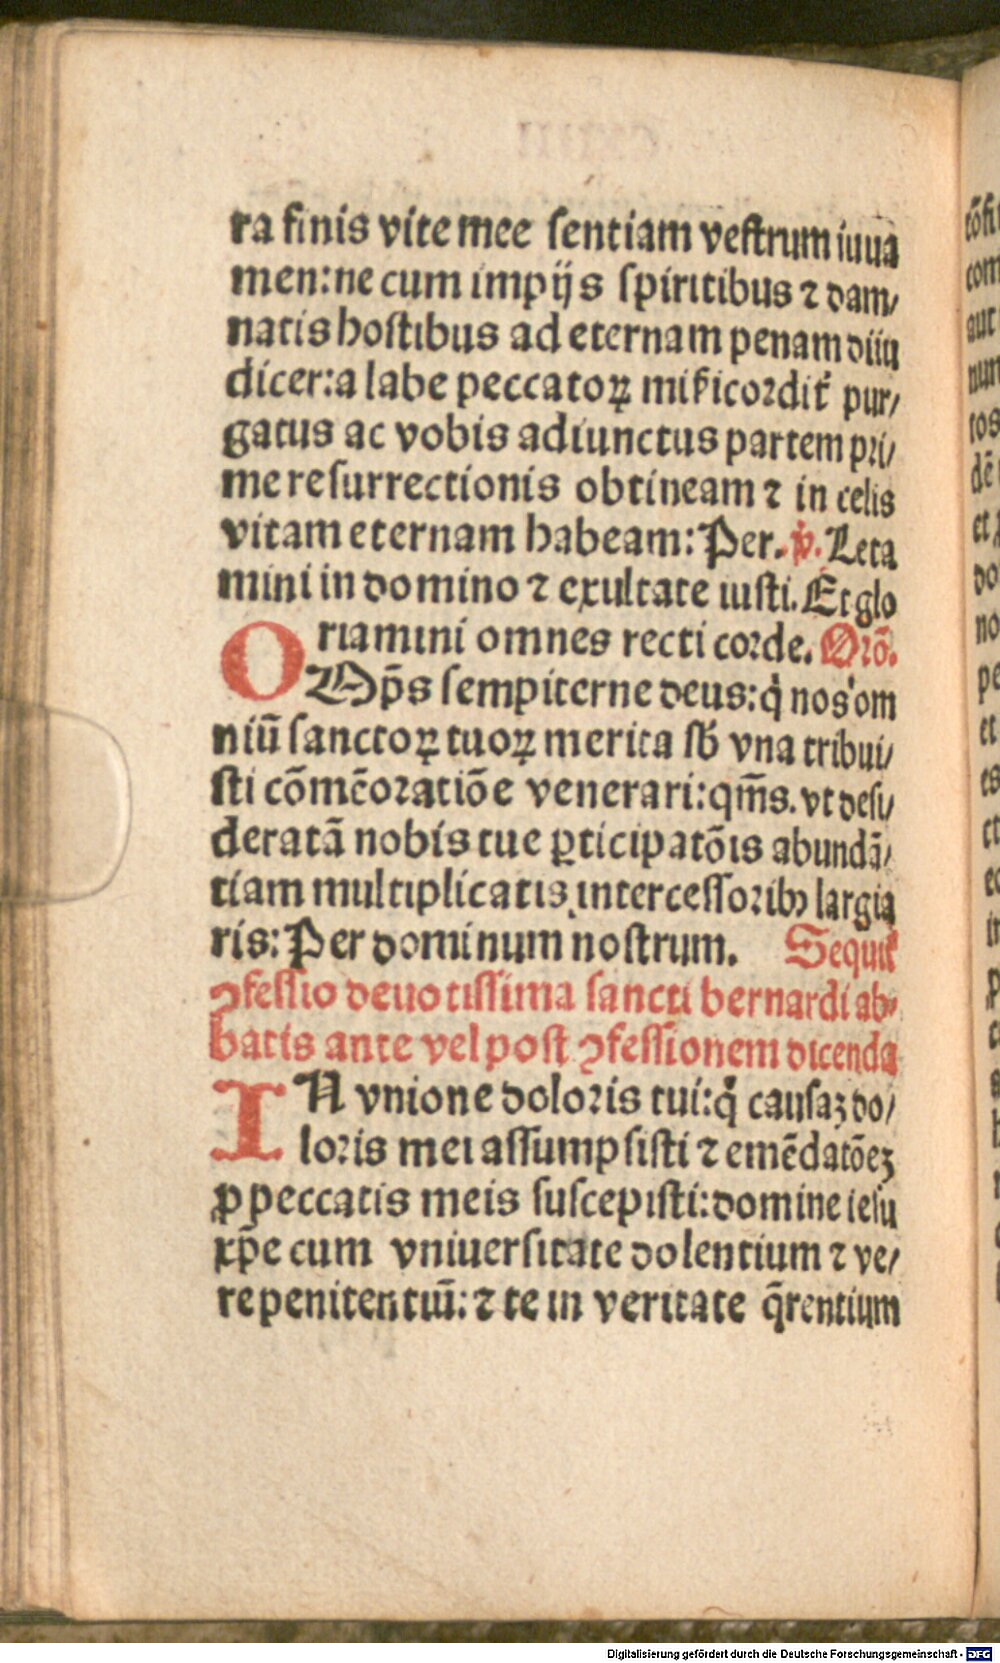 ra finis vite mee sentiam vestrum iuua
men: ne cum impijs spiritibus ⁊ dam/
natis hostibus ad eternam penam diiu
dicer: a labe peccatoꝝ mi&#x17F;icordit̃ pur/
gatus ac vobis adiunctus partem pri/
me resurrectionis obtineam ⁊ in celis
vitam eternam habeam: Per. v̕. Leta
mini in domino ⁊ exultate iusti. Et glo
riamini omnes recti corde. Orõ.
OMp̃s sempiterne deus: q̇ nos om
niũ sanctoꝝ tuoꝝ merita sb̃ vna tribui/
sti cõmẽoratiõe venerari: qm̃s. vt desi/
deratã nobis tue ꝑticipatõis abundã/
tiam multiplicatis intercessoribꝰ largia
ris: Per dominum nostrum. Sequit̃
ꝯfessio deuotissima sancti bernardi ab/
batis ante vel post ꝯfessionem dicenda
IN vnione doloris tui: q̇ causaꝫ do/
loris mei assumpsisti ⁊ emẽdatõeꝫ
ꝓ peccatis meis suscepisti: domine iesu
xp̃e cum vniuersitate dolentium ⁊ ve/
re penitentiũ: ⁊ te in veritate q̃rentium
Digitalisierung gefördert durch die Deutsche Forschungsgemeinschaft - DFG